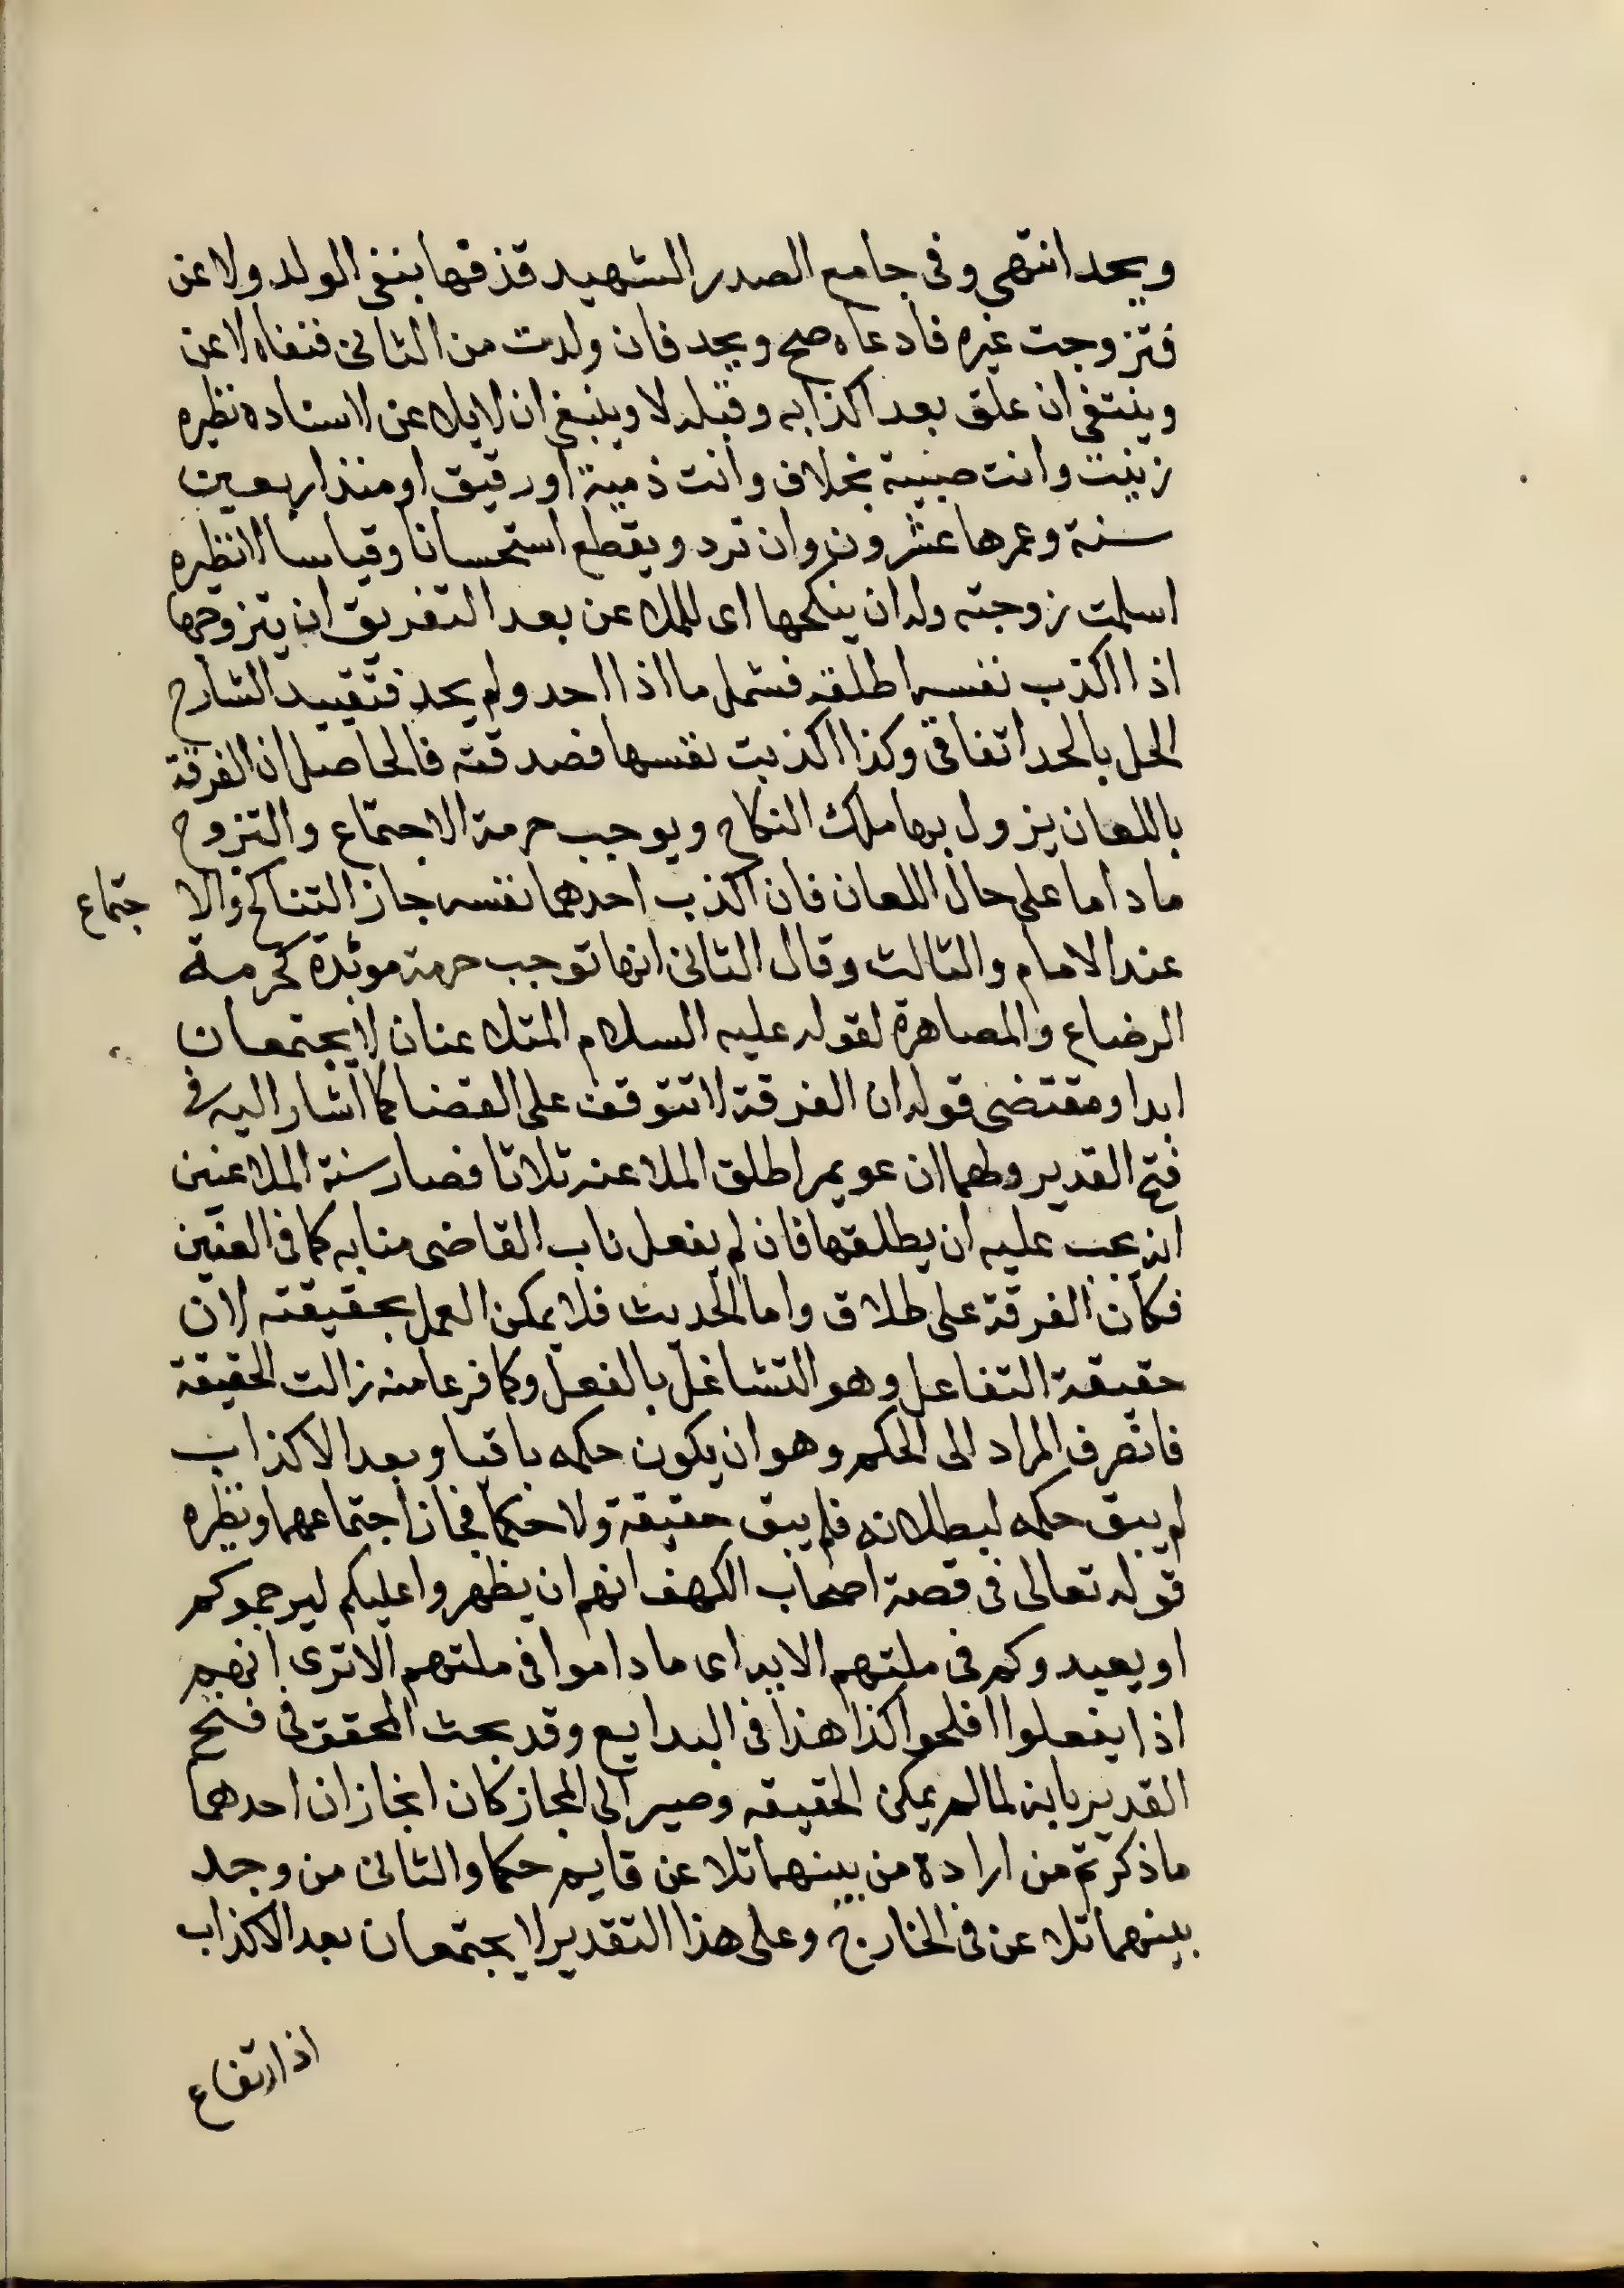 ويحد انتهى وفى جامع الصدر الشهيد قذفها بنفى الولد ولاعن
فتزوجت غيره فادعاه صح ويحد فان ولدت من الثانى فنفاه لاعن
وينتفى ان علق بعد اكذابه وقبله لا وينبغى ان لا يلاعن لاسناده نظيره
زنيت وانت صبية بخلاف وانت ذمية او رقيق او منذ اربعين
سنة وعمرها عشرون وان ترد ويقطع استحسانا وقياسا انظيره
اسلمت زوجته وله ان ينكحها اى للملاعن بعد التفريق ان يتزوجها
اذا اكذب نفسه اطلقه فشمل ما اذا احد ولم يحد فتقييد الشارح
الحل بالحد اتفاقى وكذا اكذبت نفسها فصدقته فالحاصل ان الفرقة
باللعان يزول بها ملك النكاح ويوجب حرمة الاجتماع والتزوج
ما داما على حال اللعان فان اكذب احدهما نفسه جاز التناكح والا جتماع
عند الامام والثالث وقال الثانى انها توجب حرمة موبدة كحرمة
الرضاع والمصاهرة لقوله عليه السلام المتلاعنان لا يجتمعان
ابدا ومقتضى قوله ان الفرقة لا تتوقف على القضا كما اشار اليه فى
فتح القدير ولهما ان عويمرا طلق الملاعنه ثلاثا فصار سنة الملاعنين
انه يجب عليه ان يطلقها فان لم يفعل ناب القاضى منابه كما فى العنين
فكان الفرقة على طلاق واما الحديث فلا يمكن العمل بحقيقته لان
حقيقة التفاعل وهو التشاغل بالفعل وكما فرعا منه زالت الحقيقة
فانصرف المراد الى الحكم وهو ان يكون حكمه باقيا وبعد الاكذاب
لم يبق حكمه لبطلانه فلم يبق حقيقة ولا حكما فجاز اجتماعهما ونظيره
قوله تعالى فى قصة اصحاب الكهف انهم ان يظهروا عليكم ليرجموكم
او يعيدوكم فى ملتهم الا بد اى ما داموا فى ملتهم الا ترى انهم
اذا يفعلوا افلحوا كذا هذا فى البدايع وقد بحث المحقق فى فتح
القدير بانه لما لم يمكن الحقيقه وصير الى المجاز كان انجازان احدهما
ما ذكرتم من ارادة من بينهما تلاعن قايم حكما والثانى من وجد
بينهما تلاعن فى الخارج وعلى هذا التقدير لا يجتمعان بعد الاكذاب
اذ ارتفاع